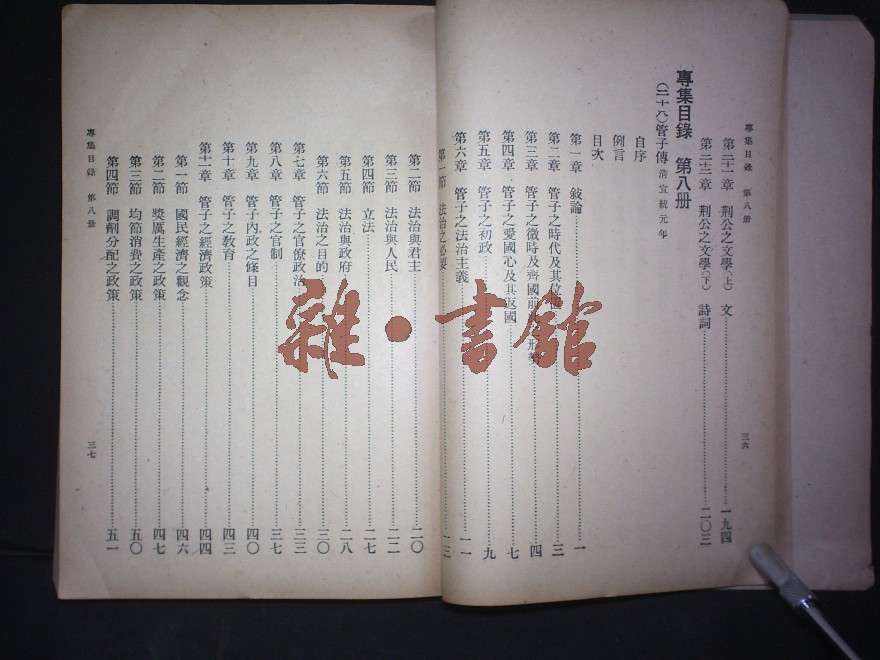 專集目錄 第八册
三六
第二十一章 荆公之文學(上) 文 一九四
第二十二章 荆公之文學(下) 詩詞 二〇三
專集目錄 第八册
(二十八)管子傳 清宣統元年
自序
例言
目次
第一章 敍論 一
第二章 管子之時代及其位置 三
第三章 管子之微時及齊國前此之形勢 四
第四章 管子之愛國心及其返國 七
第五章 管子之初政 九
第六章 管子之法治主義 一一
第一節 法治之必要 一三
第二節 法治與君主 二〇
第三節 法治與人民 二二
第四節 立法 二七
第五節 法治與政府 二八
第六節 法治之目的 三〇
第七章 管子之官僚政治 三三
第八章 管子之官制 三七
第九章 管子內政之條目 四〇
第十章 管子之敎育 四三
第十一章 管子之經濟政策 四四
第一節 國民經濟之觀念 四六
第二節 獎厲生產之政策 四七
第三節 均節消費之政策 五〇
第四節 調劑分配之政策 五一
專集目錄 第八册
三七
雜·書館